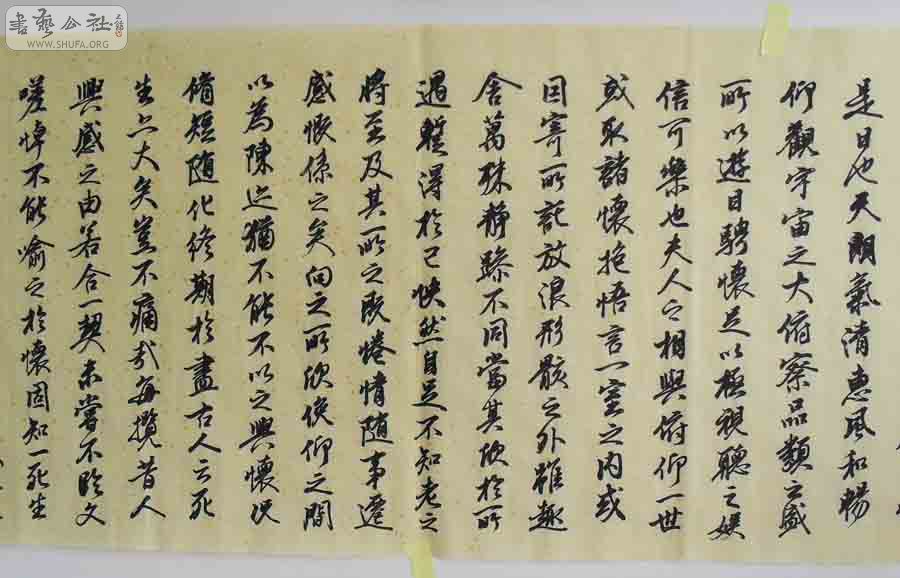 書藝公社
WWW.SHUFA.ORG
是日也天朗氣清惠風和暢
仰觀宇宙之大俯察品類之盛
所以遊目騁懷足以極視聽之娛
信可樂也夫人之相與俯仰一世
或取諸懷抱悟言一室之內或
因寄所託放浪形骸之外雖趣
舍萬殊靜躁不同當其欣於所
遇蹔得於己怏然自足不知老之
將至及其所之既惓情隨事遷
感慨係之矣向之所欣俛仰之間
以為陳迹猶不能不以之興懷況
脩短隨化終期於盡古人云死
生亦大矣豈不痛哉每攬昔人
興感之由若合一契未嘗不臨文
嗟悼不能喻之於懷固知一死生